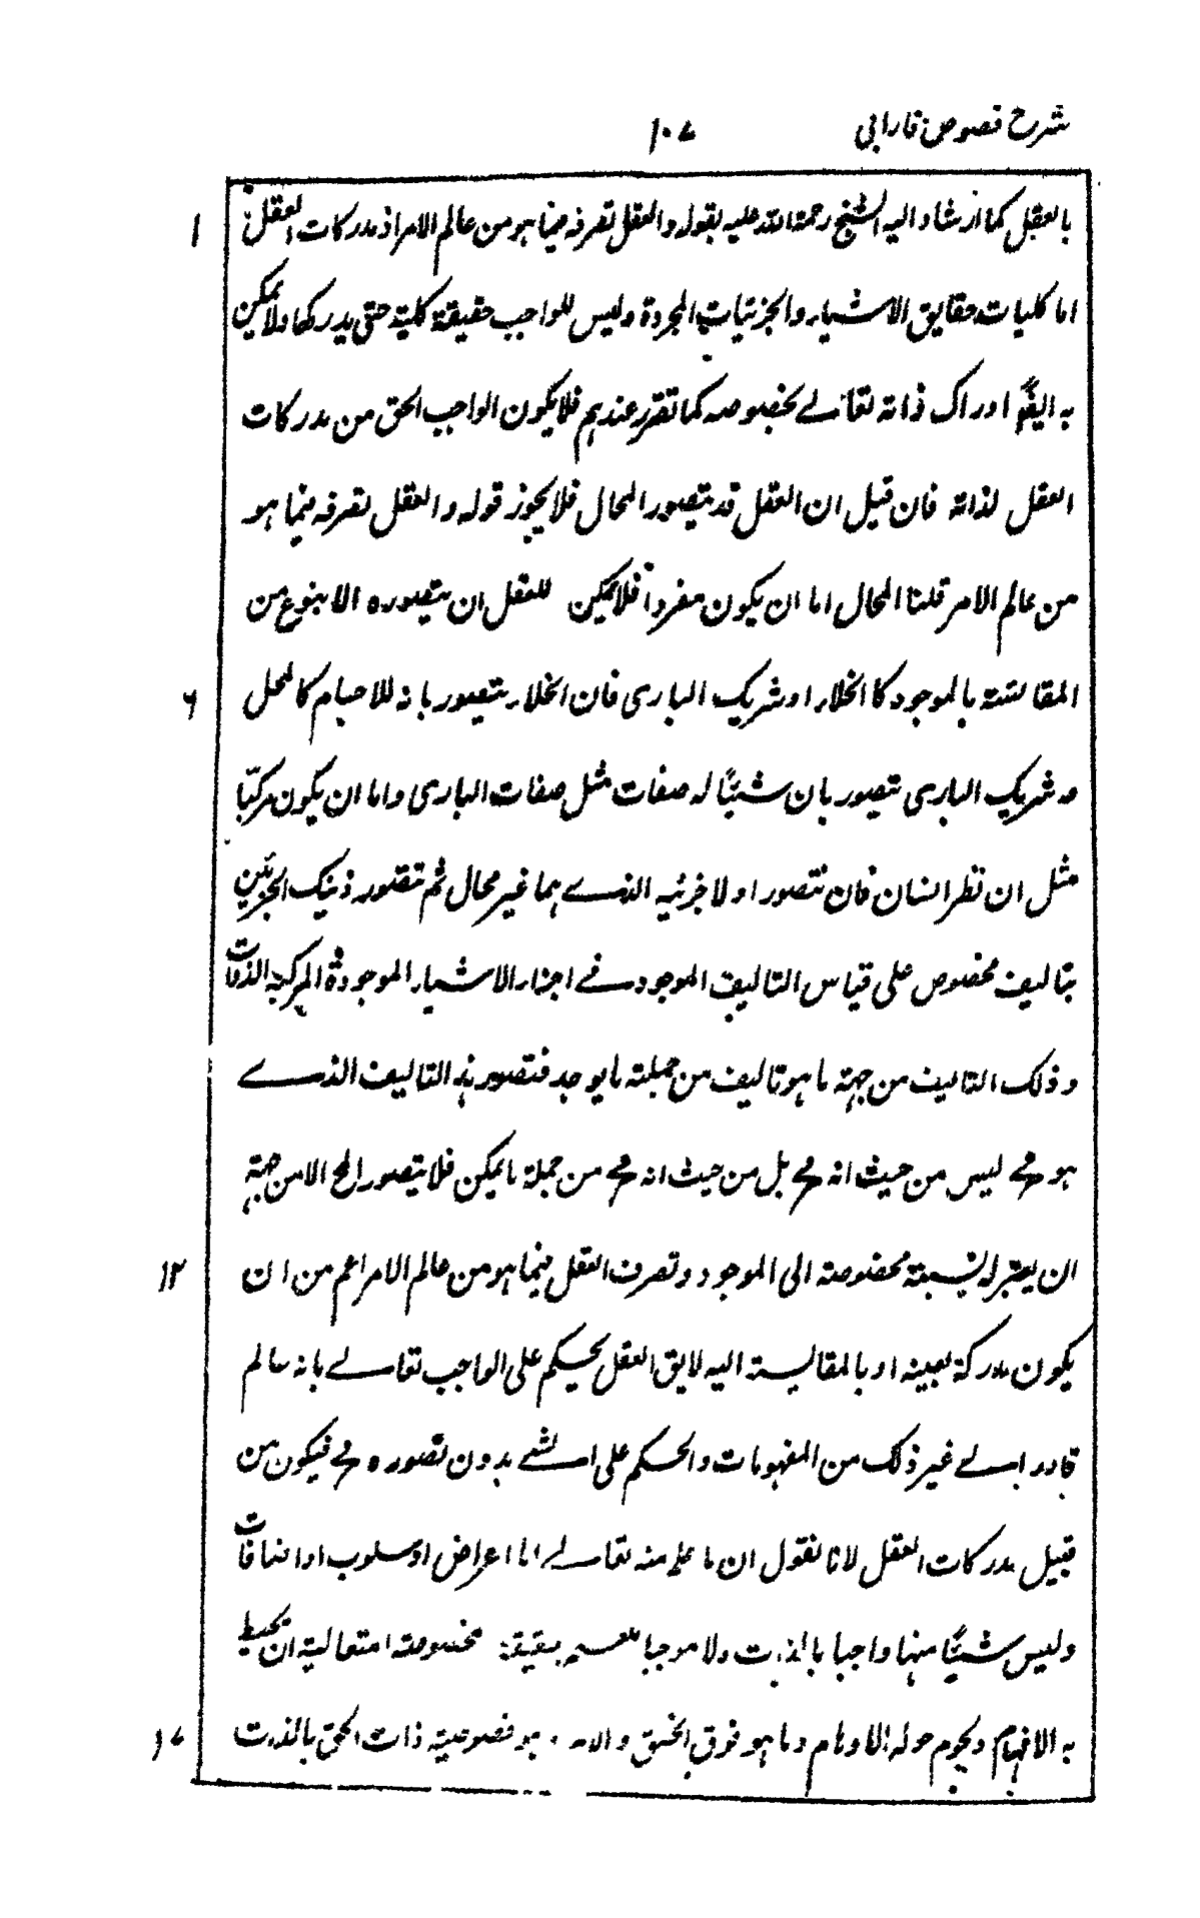 شرح فصوص فارابی ۱۰۷
بالعقل کما ارشاد الیه الشیخ رحمة الله علیه بقوله والعقل تصرفه فیما هو من عالم الامر اذ مدرکات العقل ۱
اما کلیات حقایق الاشیاء والجزئیات المجردة ولیس للواجب حقیقة کلیة حتی یدرکها ولا یمکن
به ایضًا ادراک ذاته تعالے بخصوصه کما تقرر عندهم فلا یکون الواجب الحق من مدرکات
العقل لذاته فان قیل ان العقل قد یتصور المحال فلا یجوز قوله والعقل تصرفه فیما هو
من عالم الامر قلنا المحال اما ان یکون مفرداً فلا یمکن للعقل ان یتصوره الا بنوع من
المقائسة بالموجود کالخلاء او شریک الباری فان الخلاء یتصور بانه للاجسام کالمحل ۶
و شریک الباری یتصور بان شیئًا له صفات مثل صفات الباری واما ان یکون مرکبًا
مثل ان نظر انسان فان نتصور اولا جزئیه الذے هما غیر محال ثم نتصور ذینک الجزئین
بتالیف مخصوص علی قیاس التالیف الموجود فے اجزاء الاشیاء الموجودة المرکبة الذوات
و ذلک التالیف من جهة ما هو تالیف من جملة ما یوجد فتصور هذا التالیف الذے
هو مح لیس من حیث انه مح بل من حیث انه مح من جملة ما یمکن فلا یتصور المح الا من جهة
ان یعتبر له نسبة مخصوصة الی الموجود و تصرف العقل فیما هو من عالم الامر اعم من ان ۱۲
یکون مدرکة بعینه او بالمقایسة الیه لایق العقل یحکم علی الواجب تعالے بانه عالم
قادر الے غیر ذلک من المفهومات والحکم علی الشے بدون تصوره مح فیکون من
قبیل مدرکات العقل لانا نقول ان ما علم منه تعالے اما اعراض او سلوب او اضافات
ولیس شیئًا منها واجبا بالذات ولا موجبا مخصوصة امتعالیة ان یحیط
به الافهام ویحوم حوله الاوهام وما هو فوق الخلق والامر ذات الحق بالذات ۱۷